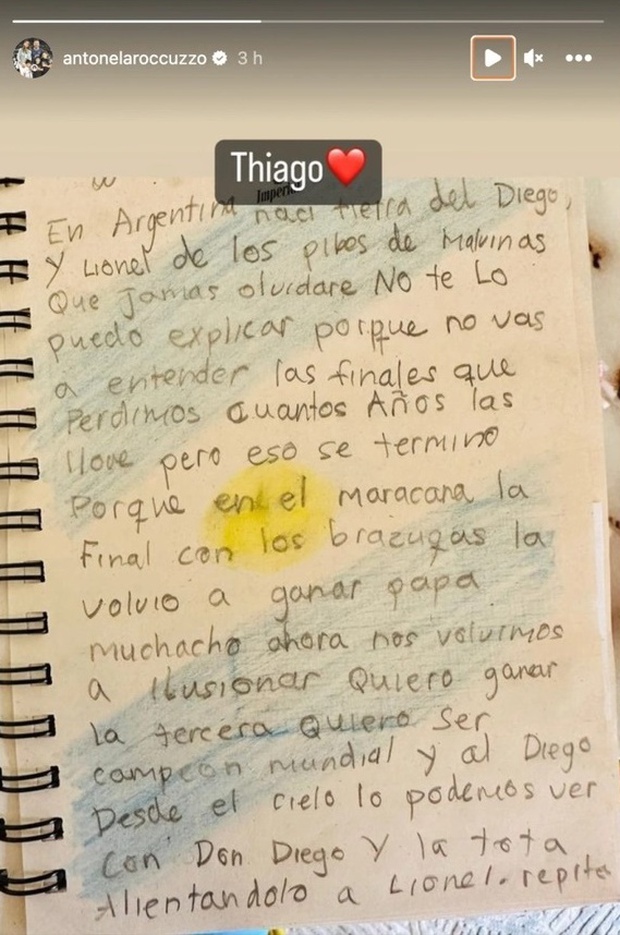 antonelaroccuzzo 3 h
Thiago❤️
En Argentina naci tierra del Diego,
y Lionel de los pibes de Malvinas
Que jamas olvidare NO te Lo
puedo explicar porque no vas
a entender las finales que
Perdimos cuantos Años las
llore pero eso se termino
Porque en el maracana la
Final con los brazucas la
volvio a ganar papa
muchacho ahora nos volvimos
a ilusionar Quiero ganar
la tercera Quiero Ser
campeon mundial y al Diego
Desde el cielo lo podemos ver
con Don Diego y la tota
Alientandolo a Lionel. repite